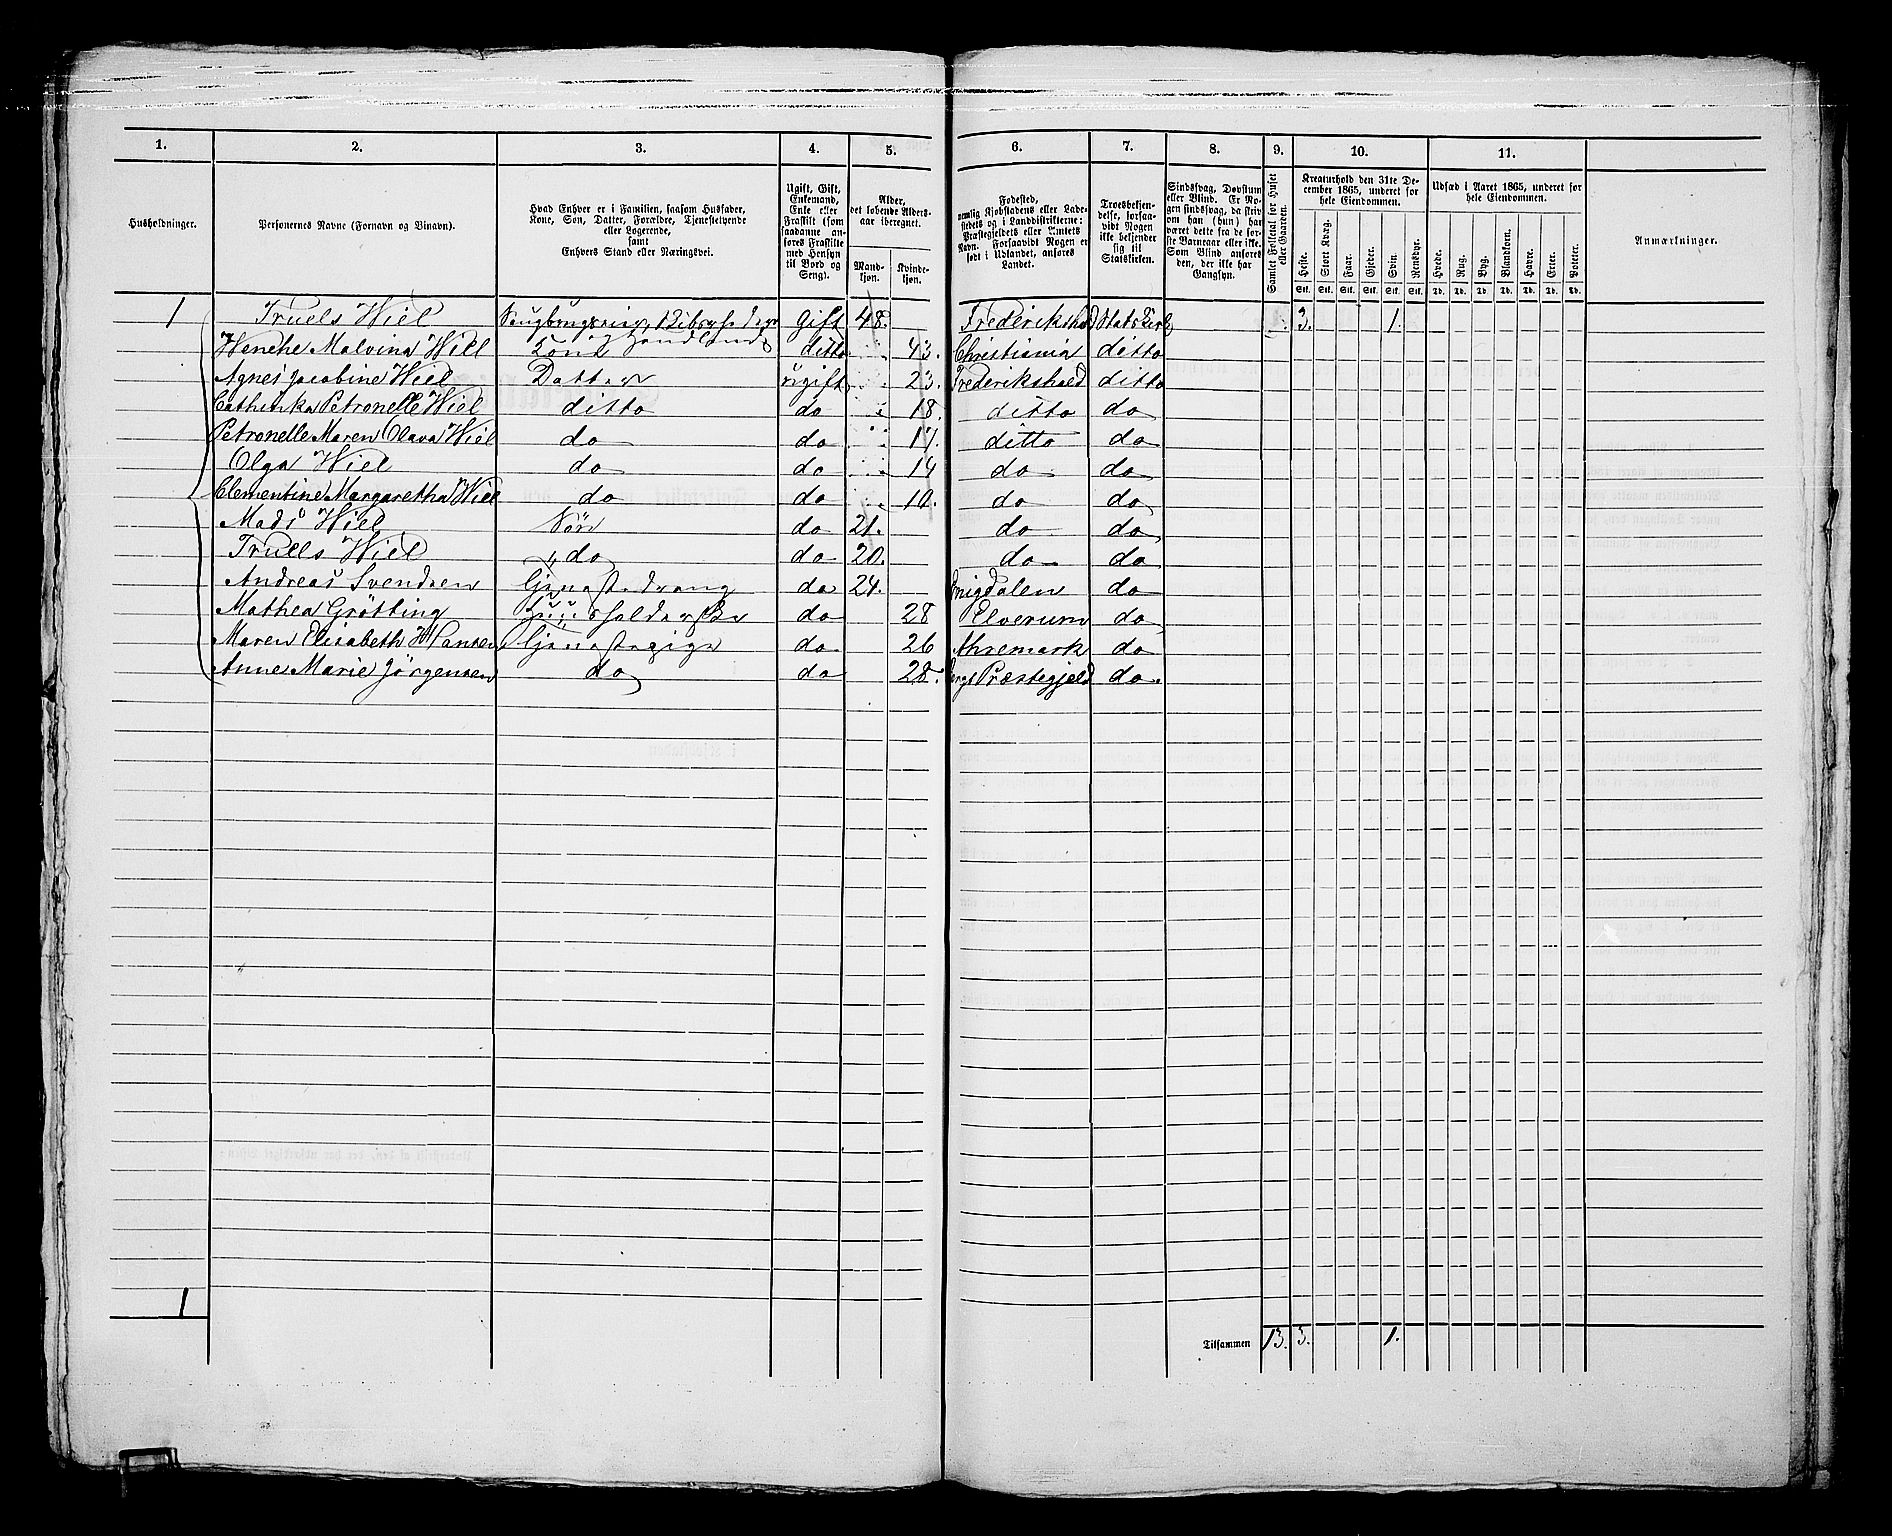 1. 2. 3. 4. 5. 6. 7. 8. 9. 10. 11.
Husholdninger.
Personernes Navne (Fornavn og Binavn).
Hvad Enhver er i Familien, saasom Husfader, Kone, Søn, Datter, Forældre, Tjenestetyende eller Logerende, samt Enhvers Stand eller Næringsvei.
Ugift, Gift, Enkemand, Enke eller Fraskilt (som saadanne anføres Fraskilte med Hensyn til Bord og Seng).
Alder, det løbende Aldersaar iberegnet.
Mandkjøn. Kvindekjøn.
Fødested, nemlig Kjøbstadens eller Ladestedets og i Landdistrikterne: Præstegjeldets eller Amtets Navn. Forsaavidt Nogen er født i Udlandet, anføres Landet.
Troesbekjendelse, forsaavidt Nogen ikke bekjender sig til Statskirken.
Sindssvag, Døvstum eller Blind. Er Nogen sindssvag, da skriv om han (hun) har været dette fra de første Barneaar eller ikke. Som Blind anføres den, der ikke har Gangsyn.
Samlet Folketal for Huset eller Gaarden.
Kreaturhold den 31te December 1865, underet for hele Eiendommen.
Heste. Stort Kvæg. Faar. Gjeder. Svin. Rensdyr.
Stk. Stk. Stk. Stk. Stk. Stk.
Udsæd i Aaret 1865, underet for hele Eiendommen.
Hvede. Rug. Byg. Blandkorn. Havre. Erter. Poteter.
Td. Td. Td. Td. Td. Td. Td.
Anmærkninger.
1 Truels Wiel Gift 48. Frederikshald Statskirk 3. 1.
Wenche Malvina Wiel Kone ditto 43. Christiania ditto
Agnes Jacobine Wiel Datter ugift 23. Frederikshald ditto
Cathinka Petronelle Wiel ditto do 18. ditto do
Petronelle Maren Olava Wiel do do 17. ditto do
Olga Wiel do do 14 do do
Clementine Margaretha Wiel do do 10. do do
Mads Wiel Søn do 21. do do
Truels Wiel do do 20. do do
Andreas Svendsen do 24. do
Mathea Grötting do 28 Elverum do
Maren Elisabeth Hansen Tjenestepige do 26 Ahremark do
Anne Marie Jörgensen do do 28. Bergs Præstegjeld do.
1
Tilsammen 13. 3. 1.